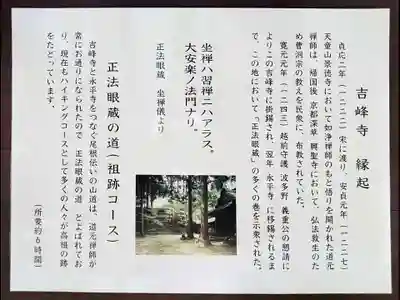 吉峰寺 縁起
貞応二年(一二二三)宋に渡り、安貞元年(一二二七)
天童山景徳寺において如浄禅師のもと悟りを開かれた道元
禅師は、帰国後、京都深草 興聖寺において、弘法救生のた
め曹洞宗の教えを民衆に、布教されていた。
寛元元年(一二四三)越前守護、波多野 義重公の懇請に
よりこの吉峰寺に掛錫され、翌年、永平寺 に移錫されるま
で、この地において「正法眼蔵」の多くの巻を示衆された。
坐禅ハ習禅ニハアラス。
大安楽ノ法門ナリ。
正法眼蔵 坐禅儀より
正法眼蔵の道(祖跡コース)
吉峰寺と永平寺をつなぐ尾根伝いの山道は、道元禅師が
常にお通りになられたので 正法眼蔵の道 とよばれてお
り、現在もハイキングコースとして多くの人々が高祖の跡
をたどっています。
(所要約6時間)